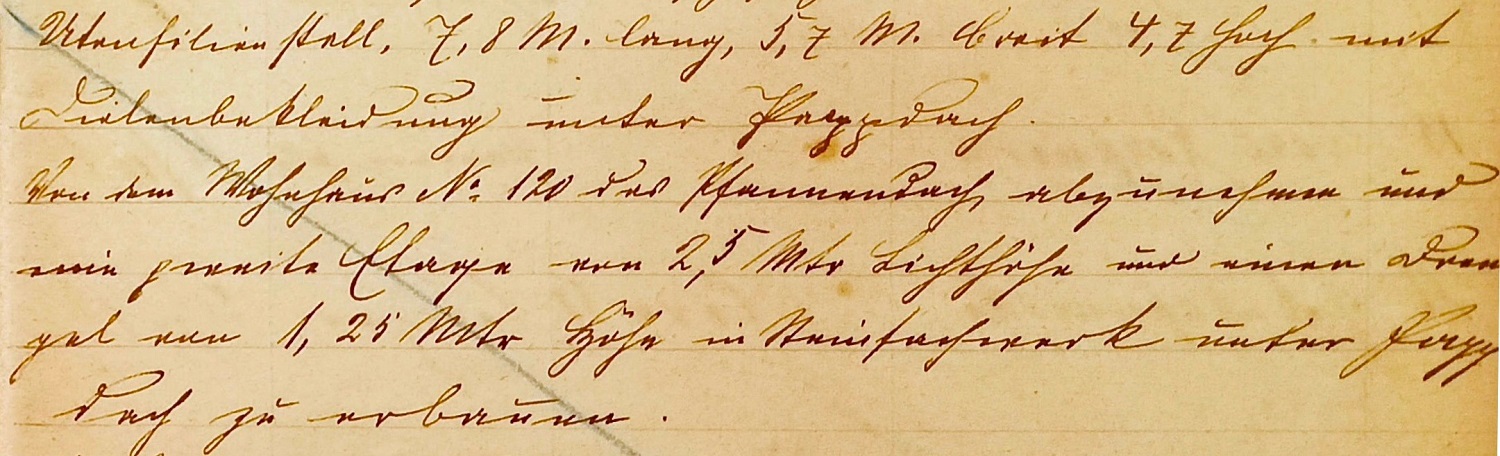 Utensilienstall, 7,8 M. lang, 5,7 M. breit 4,7 hoch mit
Dielenbekleidung unter Pappdach.
Von dem Wohnhaus No. 120 das Pfannendach abzunehmen und
eine zweite Etage von 2,5 Mtr Lichthöhe und einen Drem
pel von 1,25 Mtr Höhe in Steinfachwerk unter Papp
dach zu erbauen.